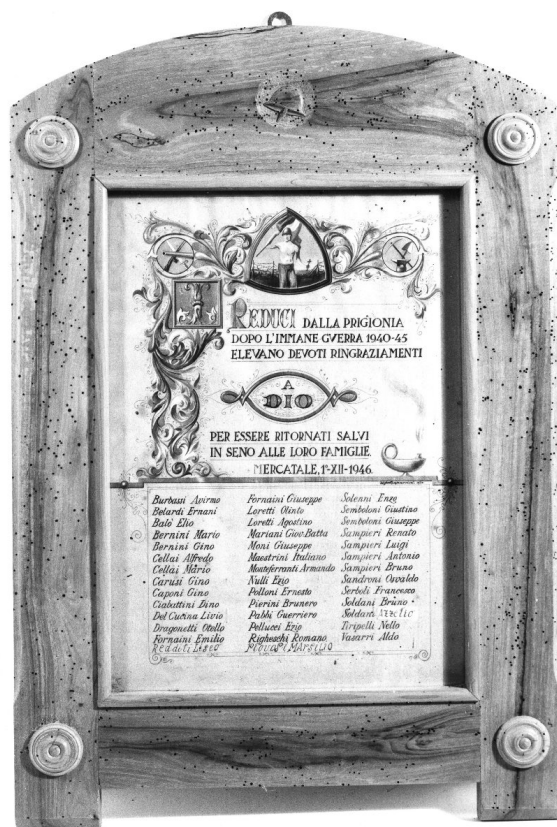 I REDUCI DALLA PRIGIONIA
DOPO L'IMMANE GVERRA 1940-45
ELEVANO DEVOTI RINGRAZIAMENTI
A
DIO
PER ESSERE RITORNATI SALVI
IN SENO ALLE LORO FAMIGLIE.
MERCATALE, 1°-XII-1946.
Burbassi Avirmo
Belardi Ernani
Balò Elio
Bernini Mario
Bernini Gino
Cellai Alfredo
Cellai Mario
Carusi Gino
Caponi Gino
Ciabattini Dino
Del Cucina Livio
Dragonetti Otello
Fornaini Emilio
Redditi Liseo
Fornaini Giuseppe
Loretti Olinto
Loretti Agostino
Mariani Giov.Batta
Moni Giuseppe
Maestrini Italiano
Monteferranti Armando
Nulli Ezio
Polloni Ernesto
Pierini Brunero
Pabhi Guerriero
Pellucci Ezio
Righeschi Romano
MArsilio
Solenni Enzo
Semboloni Giustino
Semboloni Giuseppe
Sampieri Renato
Sampieri Luigi
Sampieri Antonio
Sampieri Bruno
Sandroni Osvaldo
Serboli Francesco
Soldani Bruno
Soldani
Tiripelli Nello
Vasarri Aldo